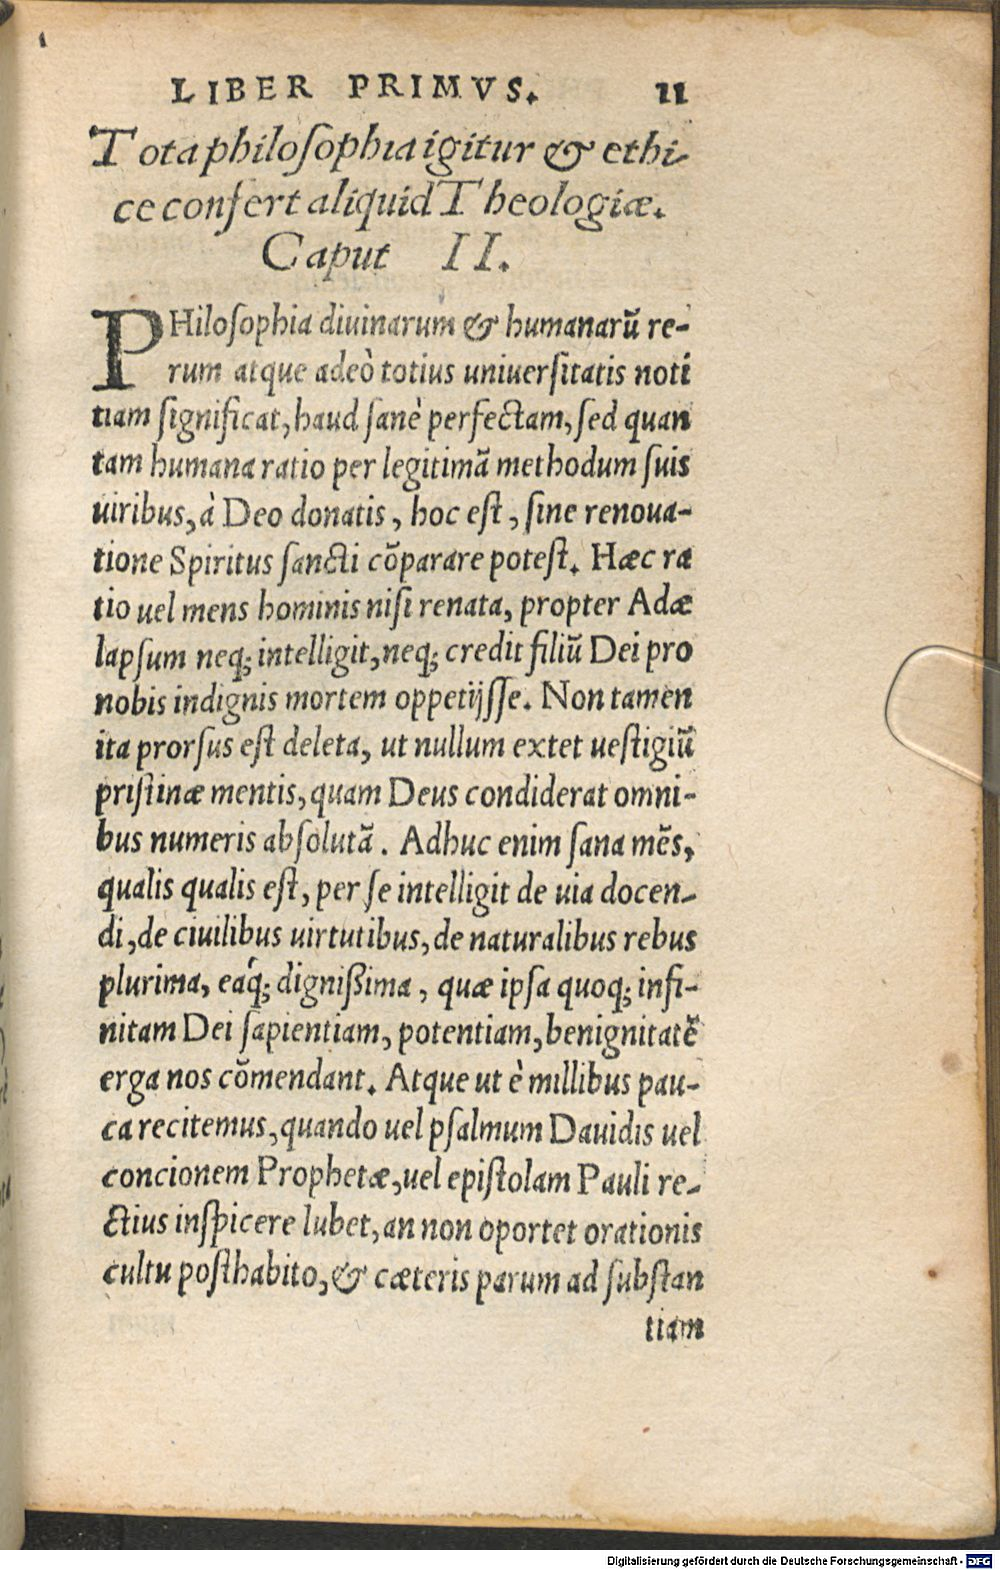 LIBER PRIMVS. 11
Tota philoſophia igitur & ethi-
ce confert aliquid Theologiæ.
Caput II.
PHiloſophia diuinarum & humanarũ re-
rum atque adeò totius uniuerſitatis noti
tiam ſignificat, haud ſanè perfectam, ſed quan
tam humana ratio per legitimã methodum ſuis
uiribus, à Deo donatis, hoc eſt, ſine renoua-
tione Spiritus ſancti cõparare poteſt. Hæc ra
tio uel mens hominis niſi renata, propter Adæ
lapſum neq; intelligit, neq; credit filiũ Dei pro
nobis indignis mortem oppetijſſe. Non tamen
ita prorſus eſt deleta, ut nullum extet ueſtigiũ
priſtinæ mentis, quam Deus condiderat omni-
bus numeris abſolutã. Adhuc enim ſana mẽs,
qualis qualis eſt, per ſe intelligit de uia docen-
di, de ciuilibus uirtutibus, de naturalibus rebus
plurima, eáq; digniſsima, quæ ipſa quoq; infi-
nitam Dei ſapientiam, potentiam, benignitatẽ
erga nos cõmendant. Atque ut è millibus pau-
ca recitemus, quando uel pſalmum Dauidis uel
concionem Prophetæ, uel epiſtolam Pauli re-
ctius inſpicere lubet, an non oportet orationis
cultu poſthabito, & cæteris parum ad ſubſtan
tiam
Digitalisierung gefördert durch die Deutsche Forschungsgemeinschaft - DFG